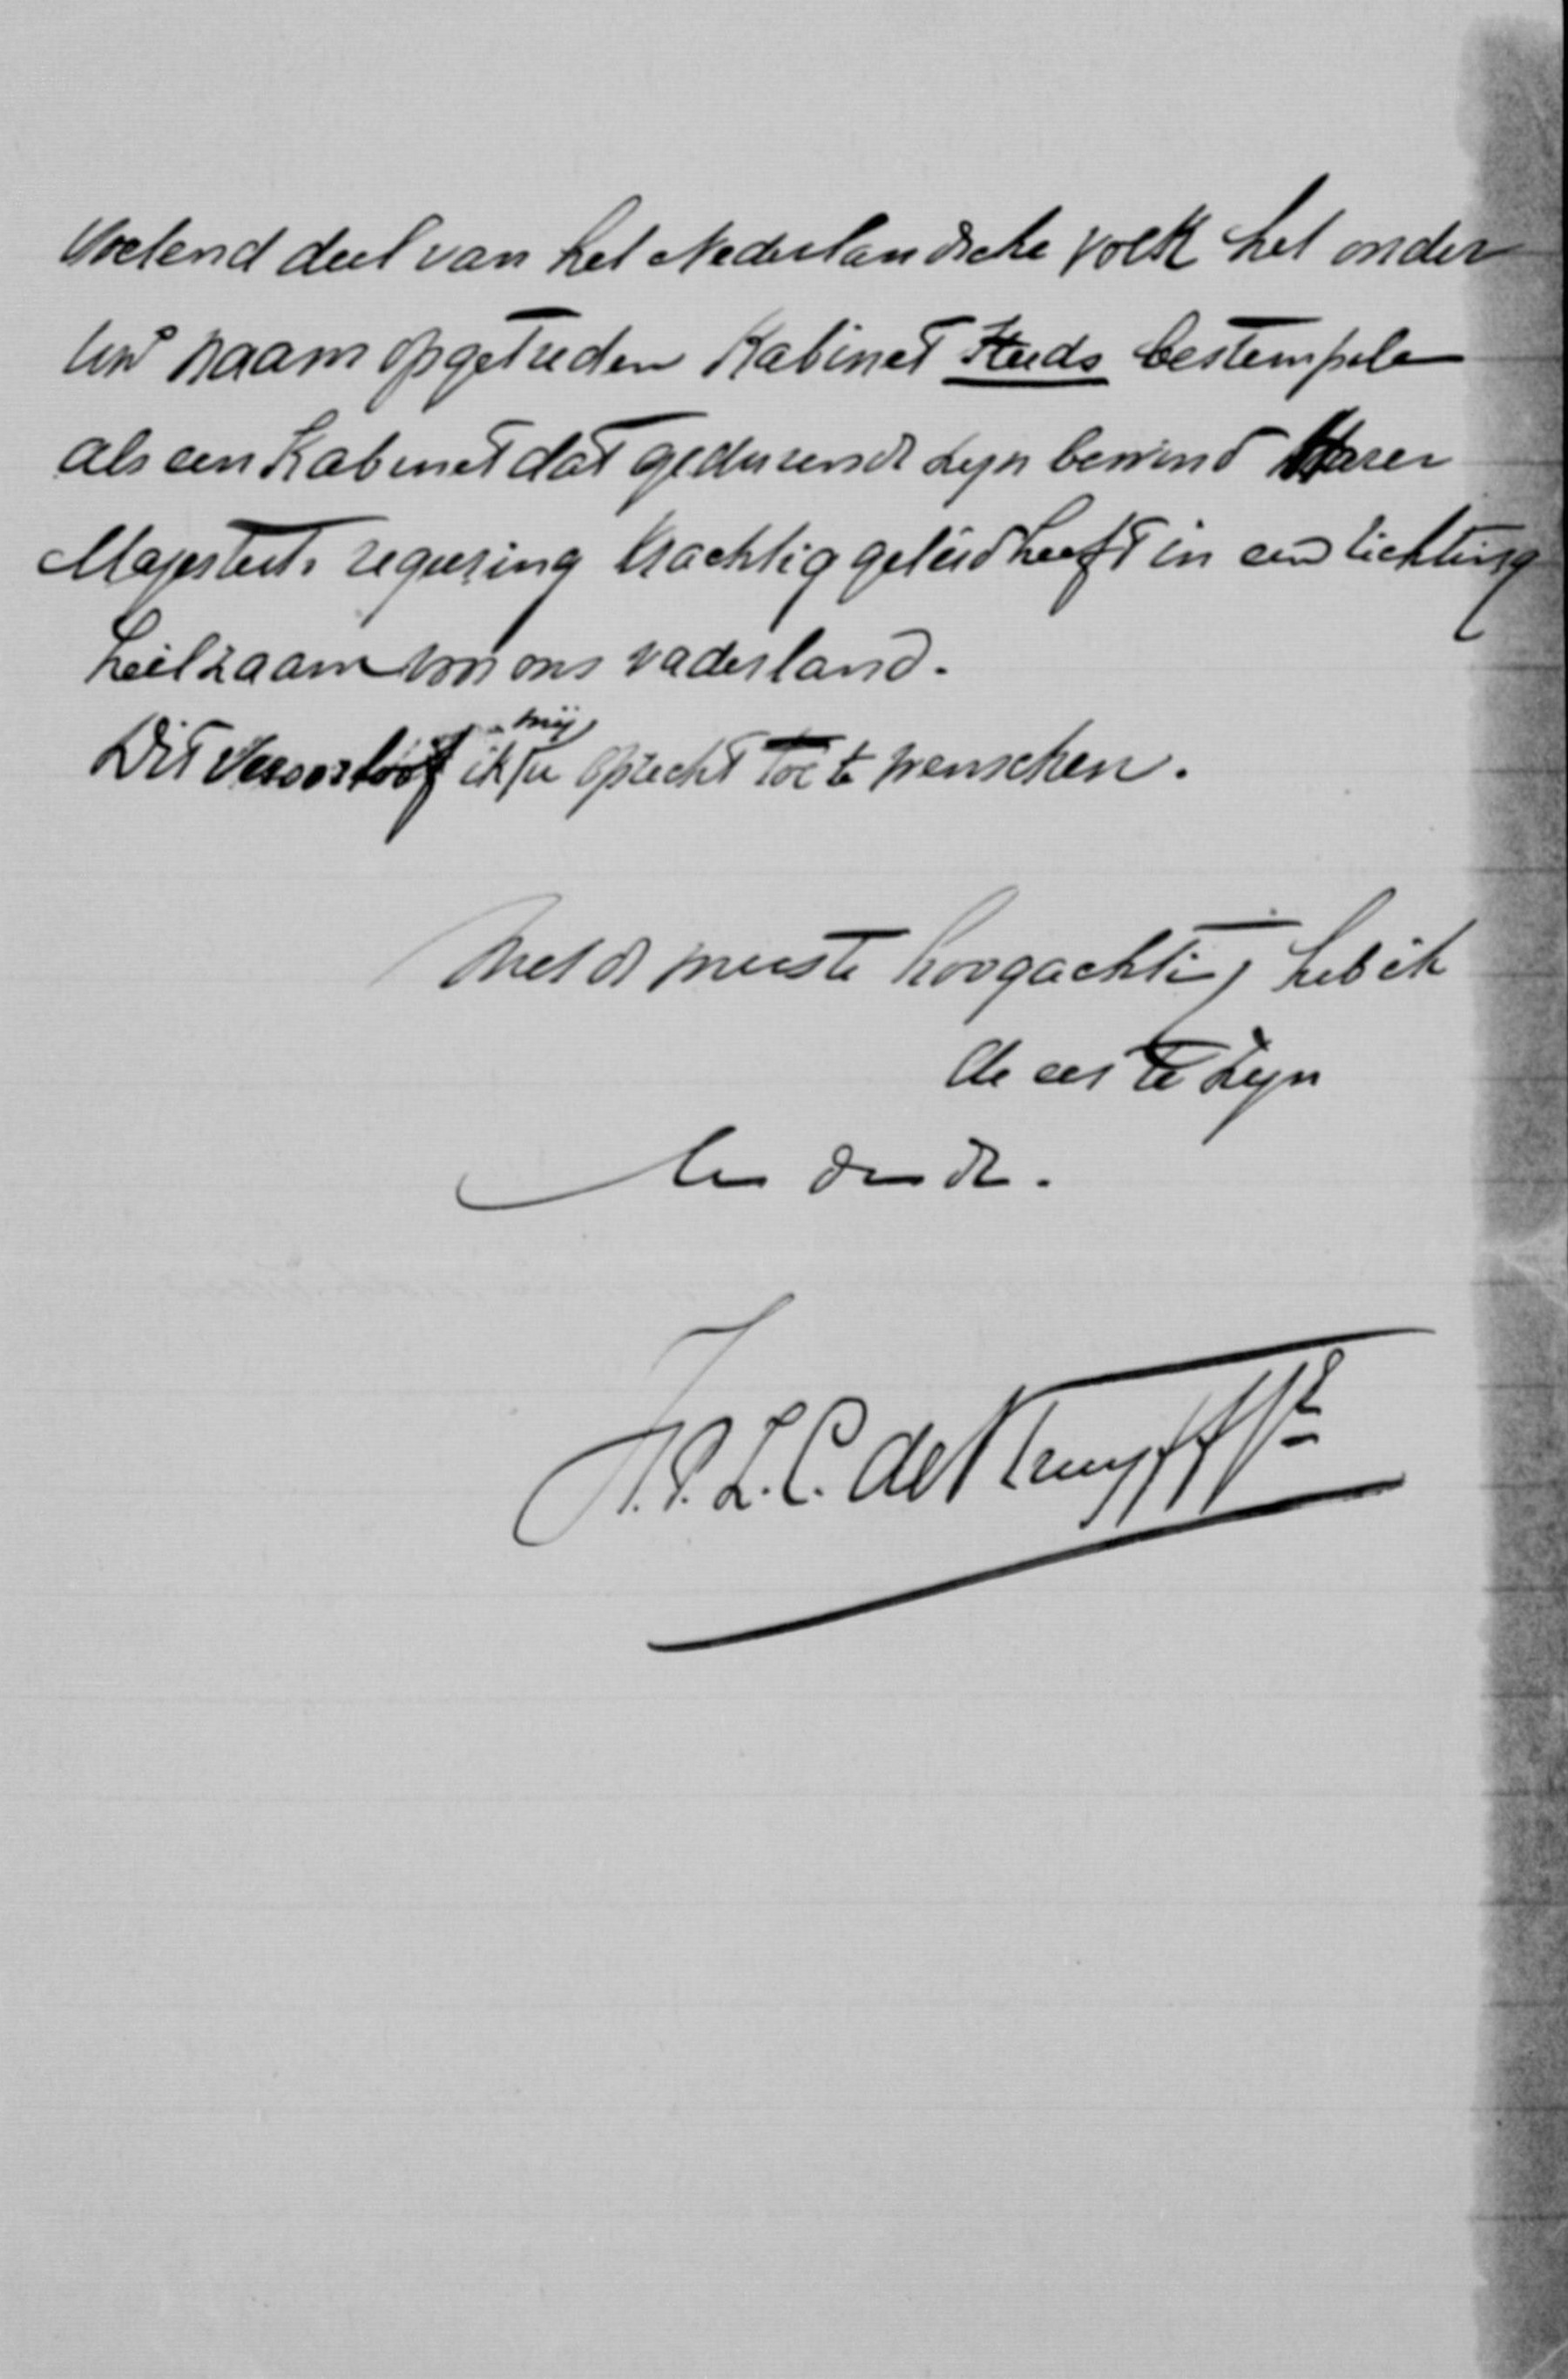 voelend deel van het Nederlandsche volk het onder
Uw naam opgetreden Kabinet steeds bestempele
als een Kabinet dat gedurende zijn bewind Harer
Majesteits regeering krachtig geleid heeft in een richting
heilzaam voor ons vaderland.
Dit veroorloof ik mij U oprecht toe te wenschen.
Met de meeste hoogachting heb ik
de eer te zijn
Uw dw dr.
H.P.L.C. de Kruyff Jr